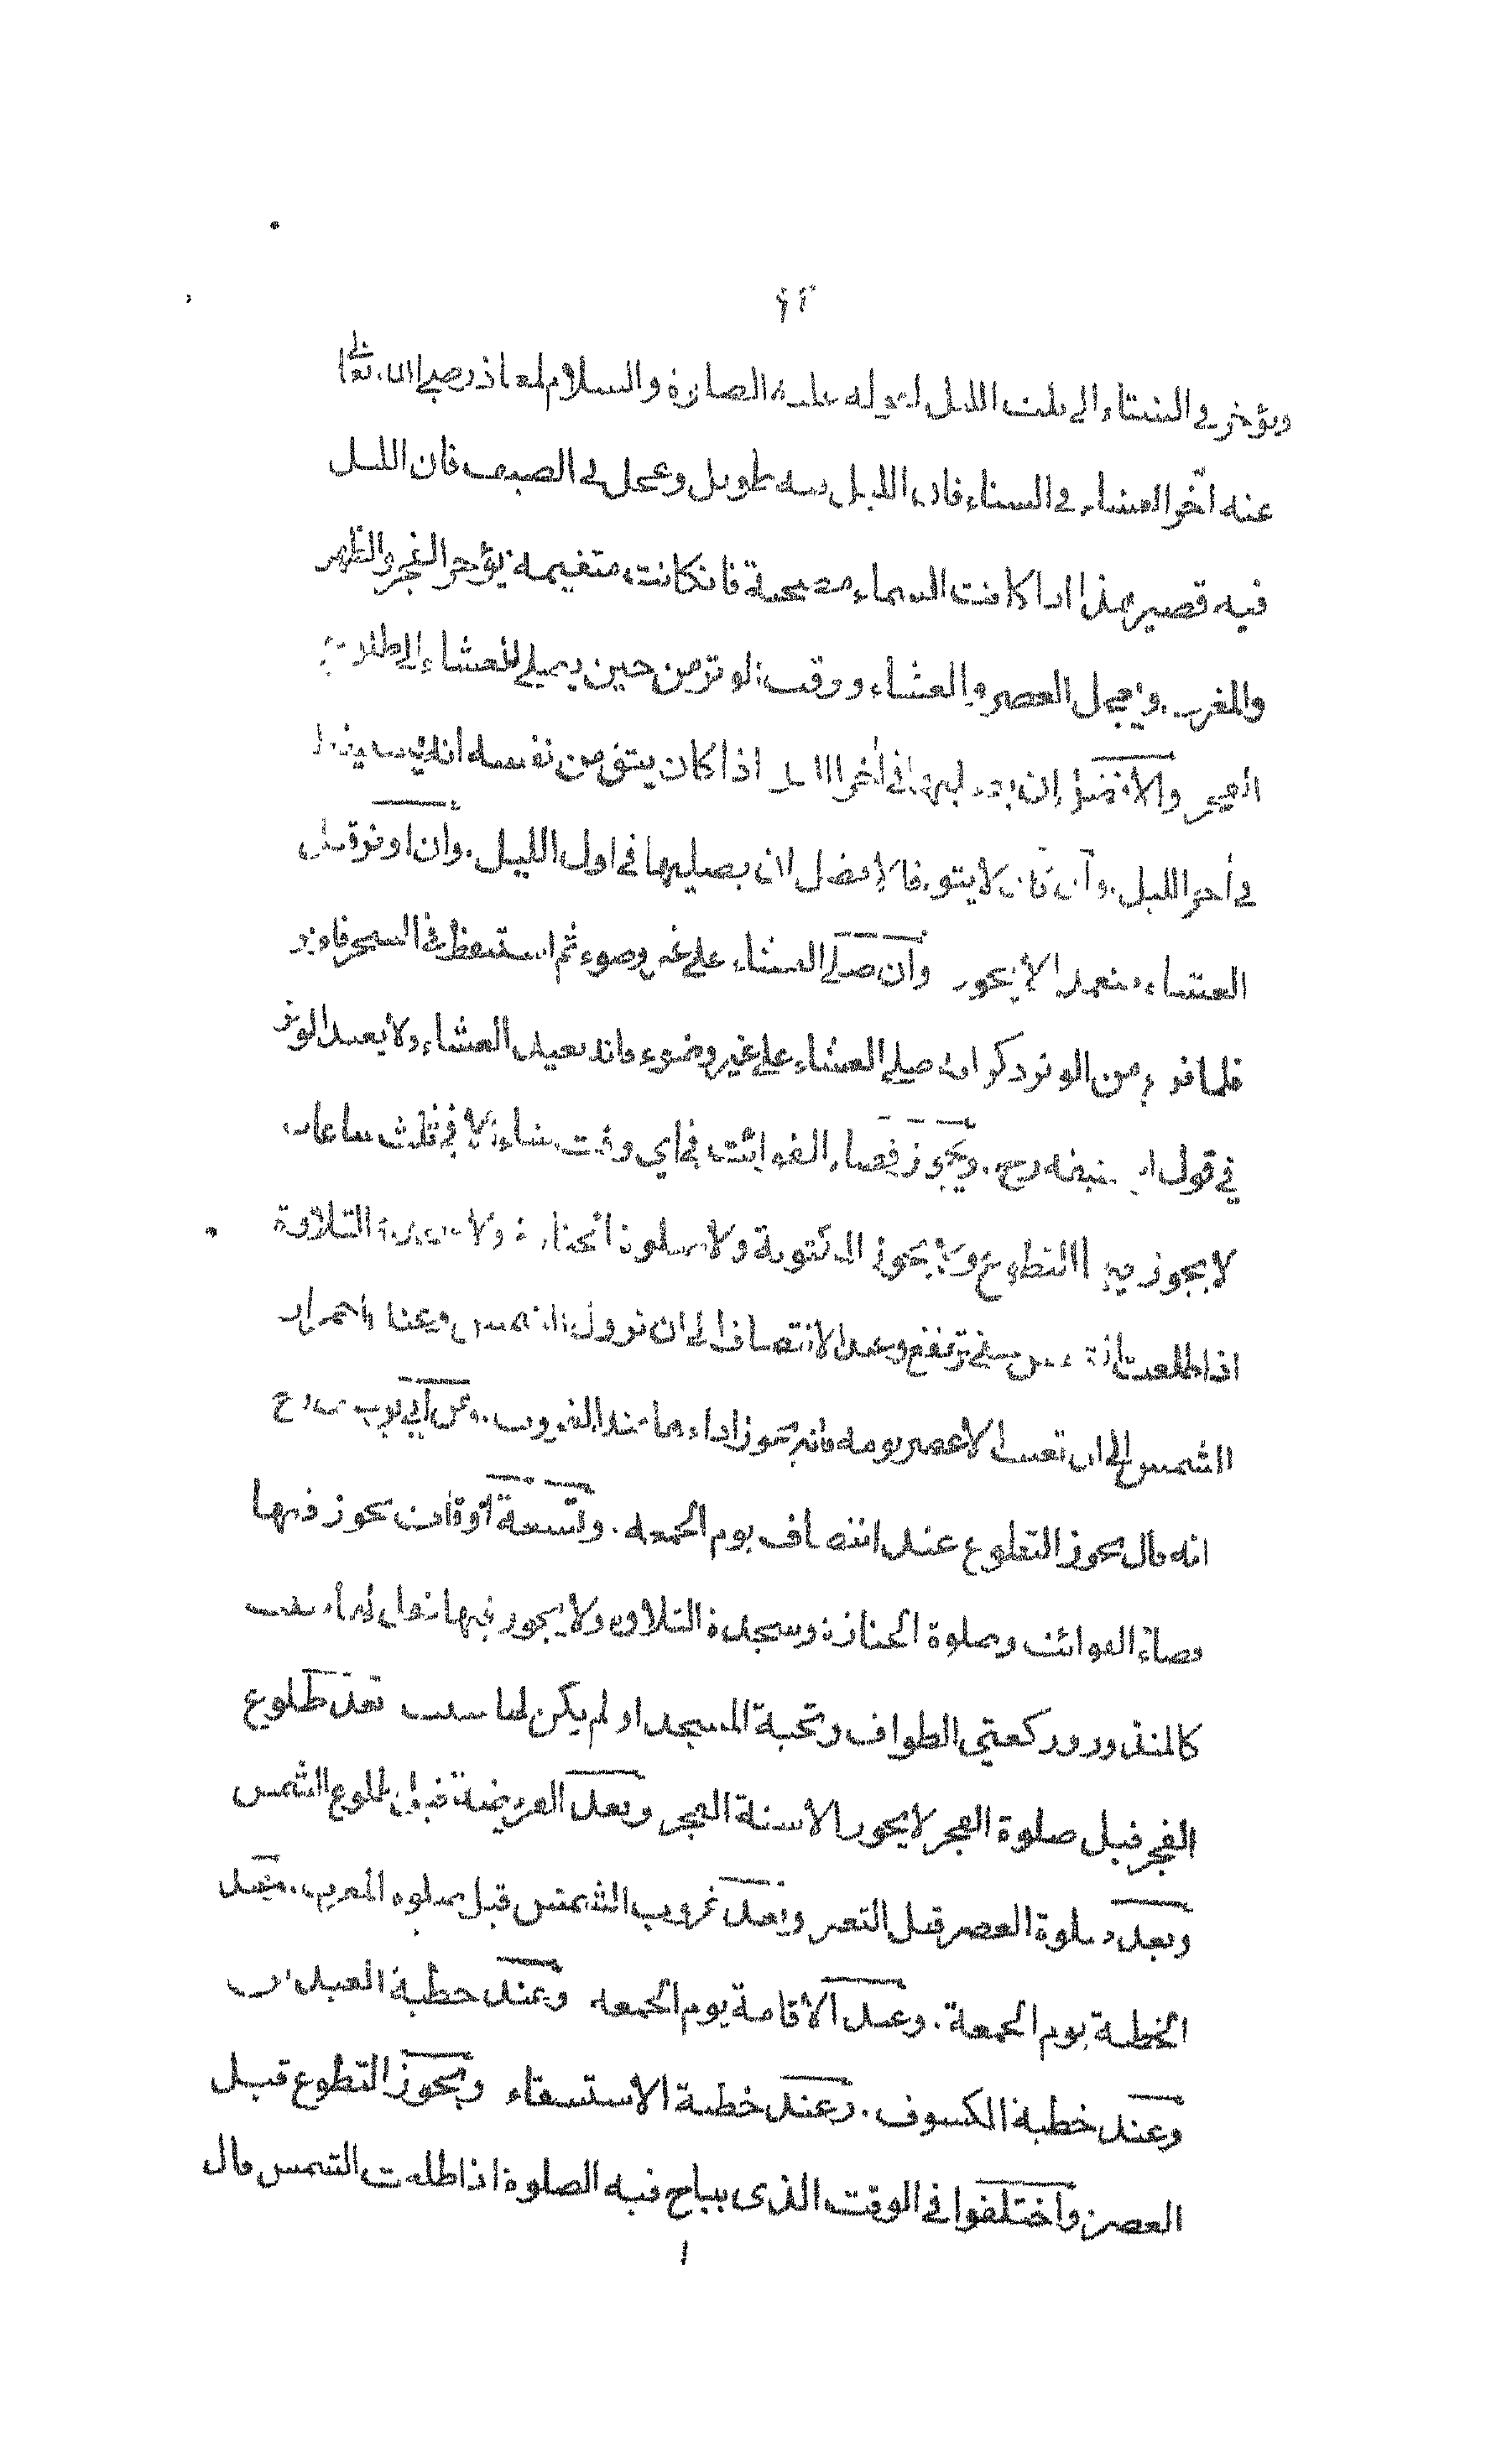 ويؤخر في الشتاء الى ثلث الليل لقوله عليه الصلوة والسلام لمعاذ رضي الله تعالى
عنه اخّر العشاء في الشتاء فان الليل فيه طويل وعجل في الصيف فان الليل
فيه قصير هذا اذا كانت السماء مصحية فانكانت متغيمة يؤخر الفجر والظهر
والمغرب ويعجل العصر والعشاء ووقت الوتر من حين يصلي العشاء الى طلوع
الفجر والافضل ان يصليها في اخر الليل اذا كان يثق من نفسه انه يستيقظ
في اخر الليل وان كان لا يثق فالافضل ان يصليها في اول الليل. وان اوتر قبل
العشاء متعمدا لا يجوز وان صلى العشاء على غير وضوء ثم استيقظ في السحر فاوتر
فلما فرغ من الوتر ذكر انه صلى العشاء على غير وضوء فانه يعيد العشاء ولا يعيد الوتر
في قول ابي حنيفه رح. ويجوز قضاء الفوائت في اي وقت شاء الا في ثلث ساعات
لا يجوز فيها التطوع ولا يجوز المكتوبة ولا صلوة الجنازة ولا سجدة التلاوة
اذا طلعت الشمس حتى ترتفع وعند الانتصاف الى ان تزول الشمس وعند احمرار
الشمس الى ان تغيب الا عصر يومه فانه يجوز اداءها عند الغروب. وعن ابي يوسف رح
انه قال يجوز التطوع عند انتصاف يوم الجمعه. وتسعة اوقات يجوز فيها
قضاء الفوائت وصلوة الجنازة وسجدة التلاوة ولا يجوز فيها نفل لها سبب
كالمنذور وركعتي الطواف وتحية المسجد او لم يكن لها سبب بعد طلوع
الفجر قبل صلوة الفجر لا يجوز الا سنة الفجر وبعد الفريضة قبل طلوع الشمس
وبعد صلوة العصر قبل التغير وبعد غروب الشمس قبل صلوة المغرب. وعند
الخطبة يوم الجمعة. وعند الاقامة يوم الجمعه وعند خطبة العيدين
وعند خطبة الكسوف. وعند خطبة الاستسقاء ويجوز التطوع قبل
العصر واختلفوا في الوقت الذى يباح فيه الصلوة اذا طلعت الشمس قال